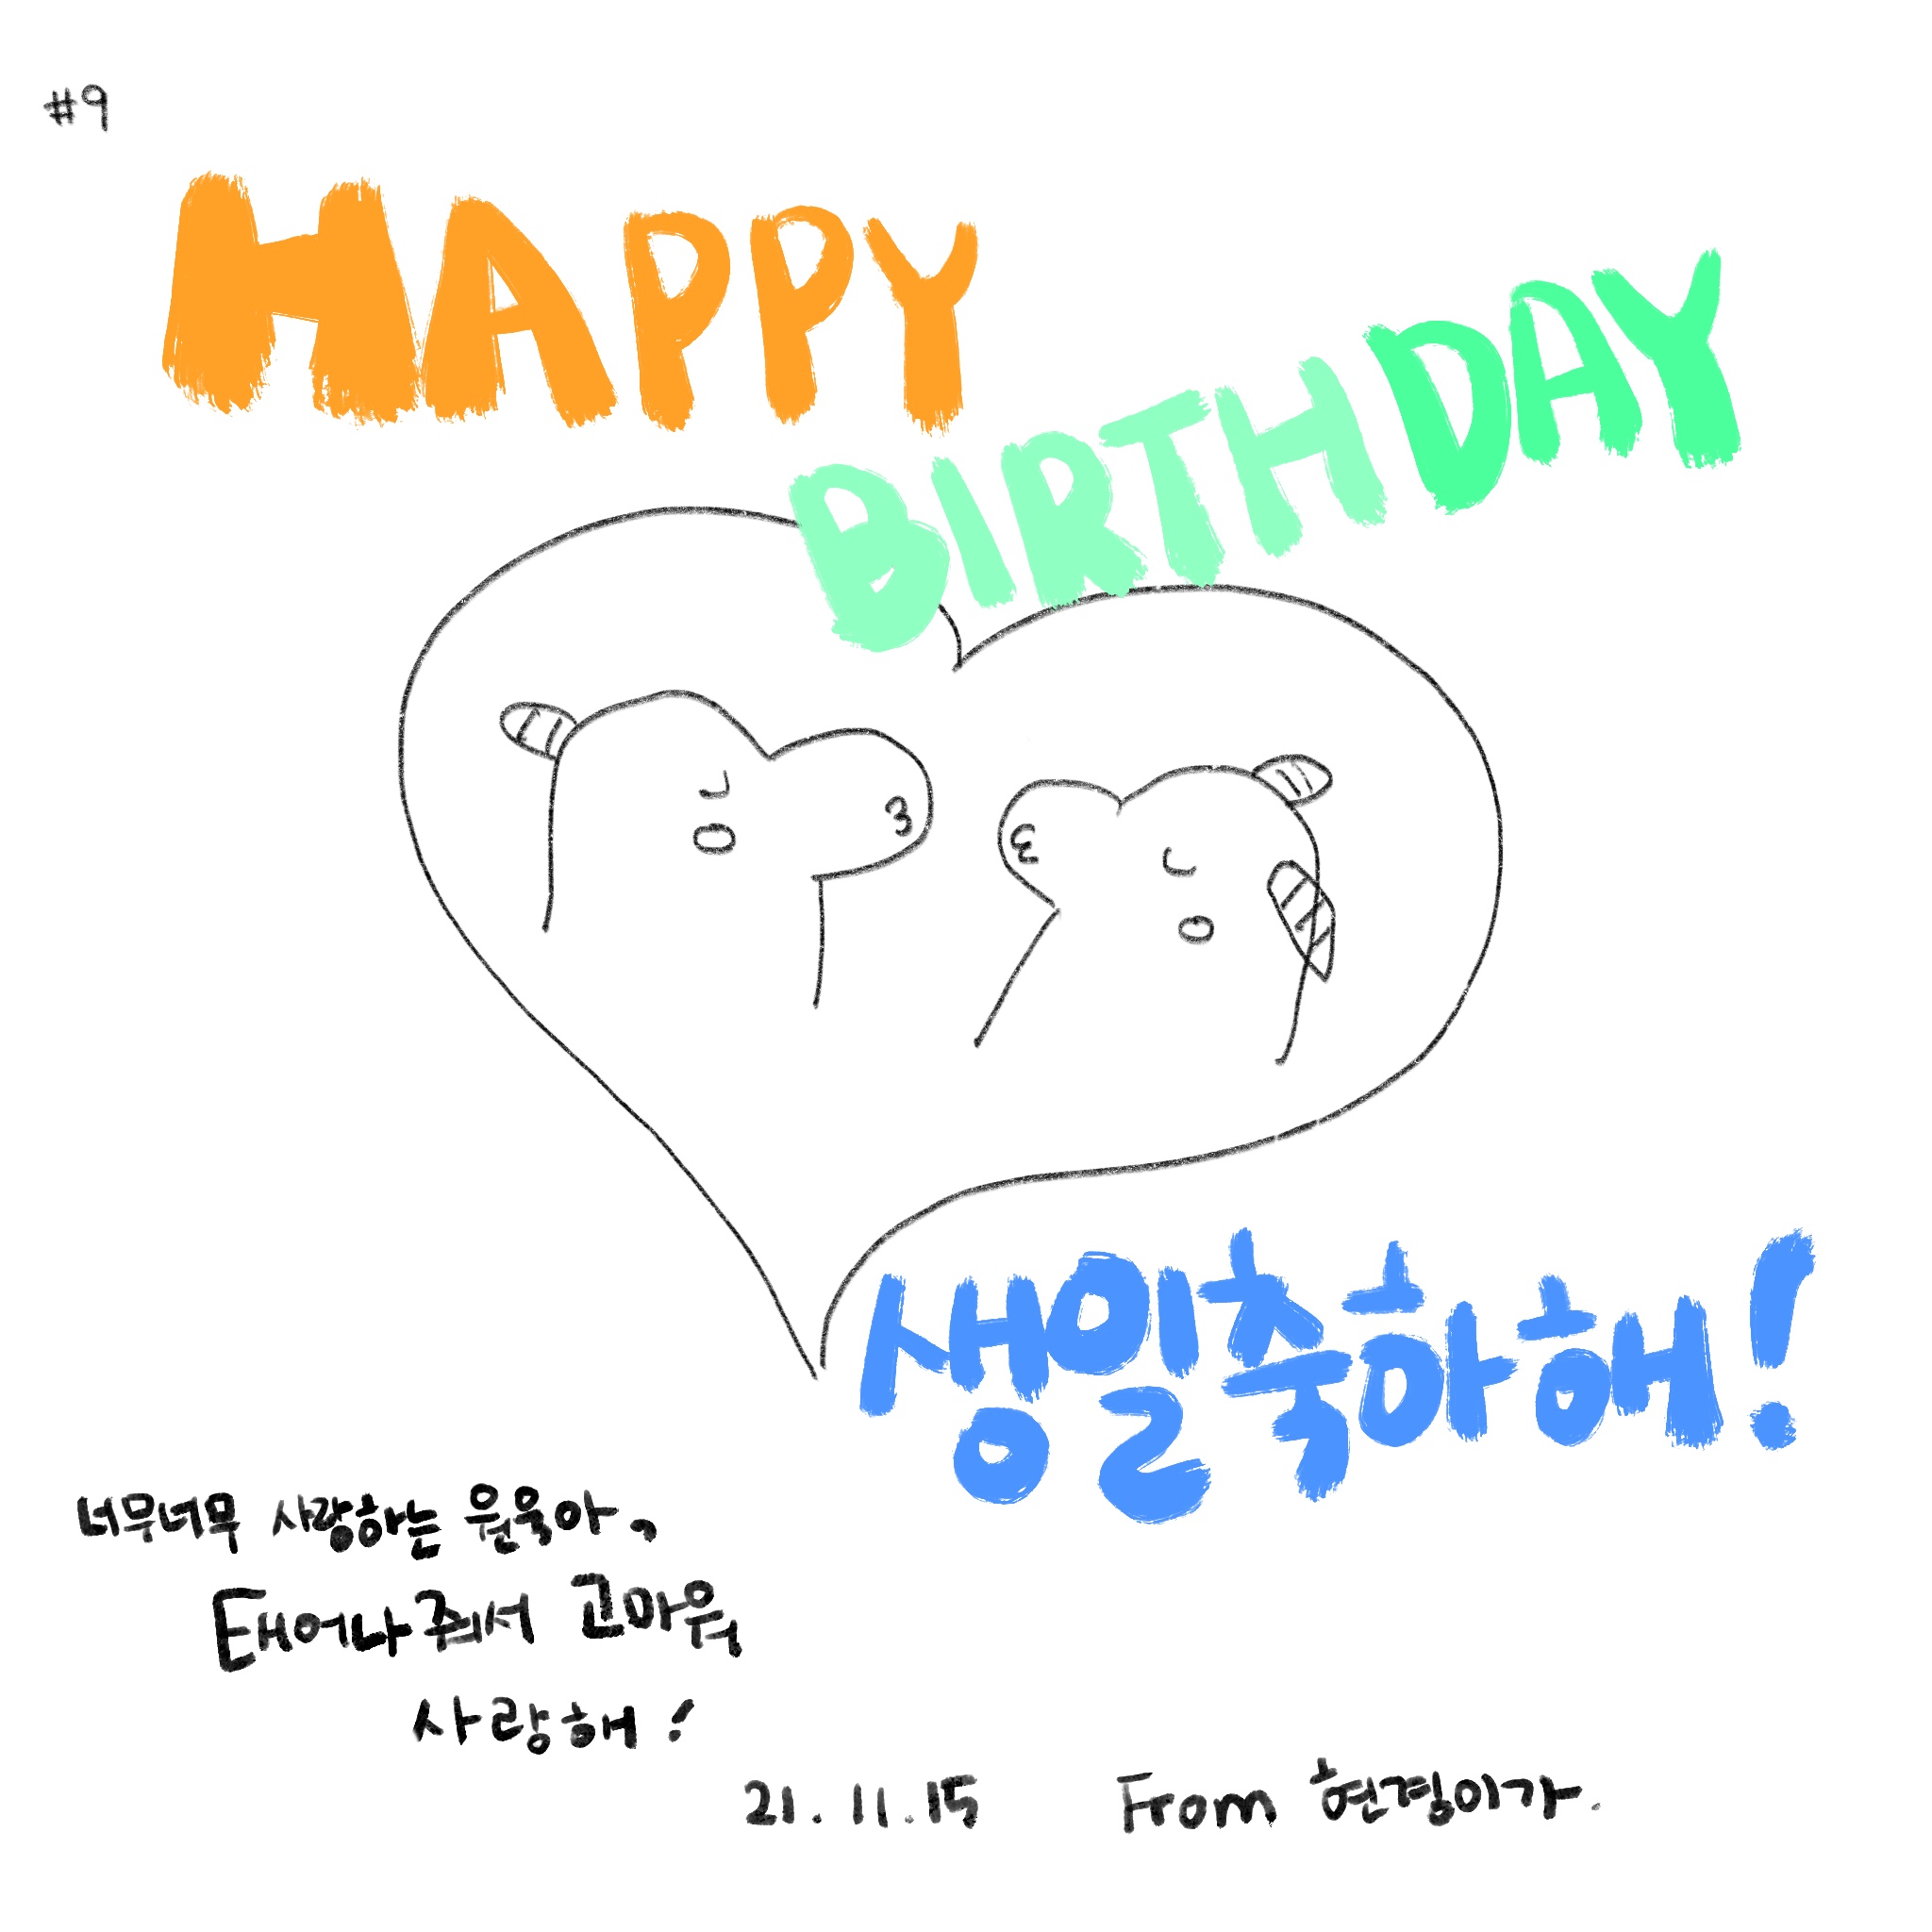 #9
HAPPY
BIRTHDAY
생일축하해!
너무너무 사랑하는 원욱아,
태어나줘서 고마워
사랑해!
21.11.15 From 현경이가.